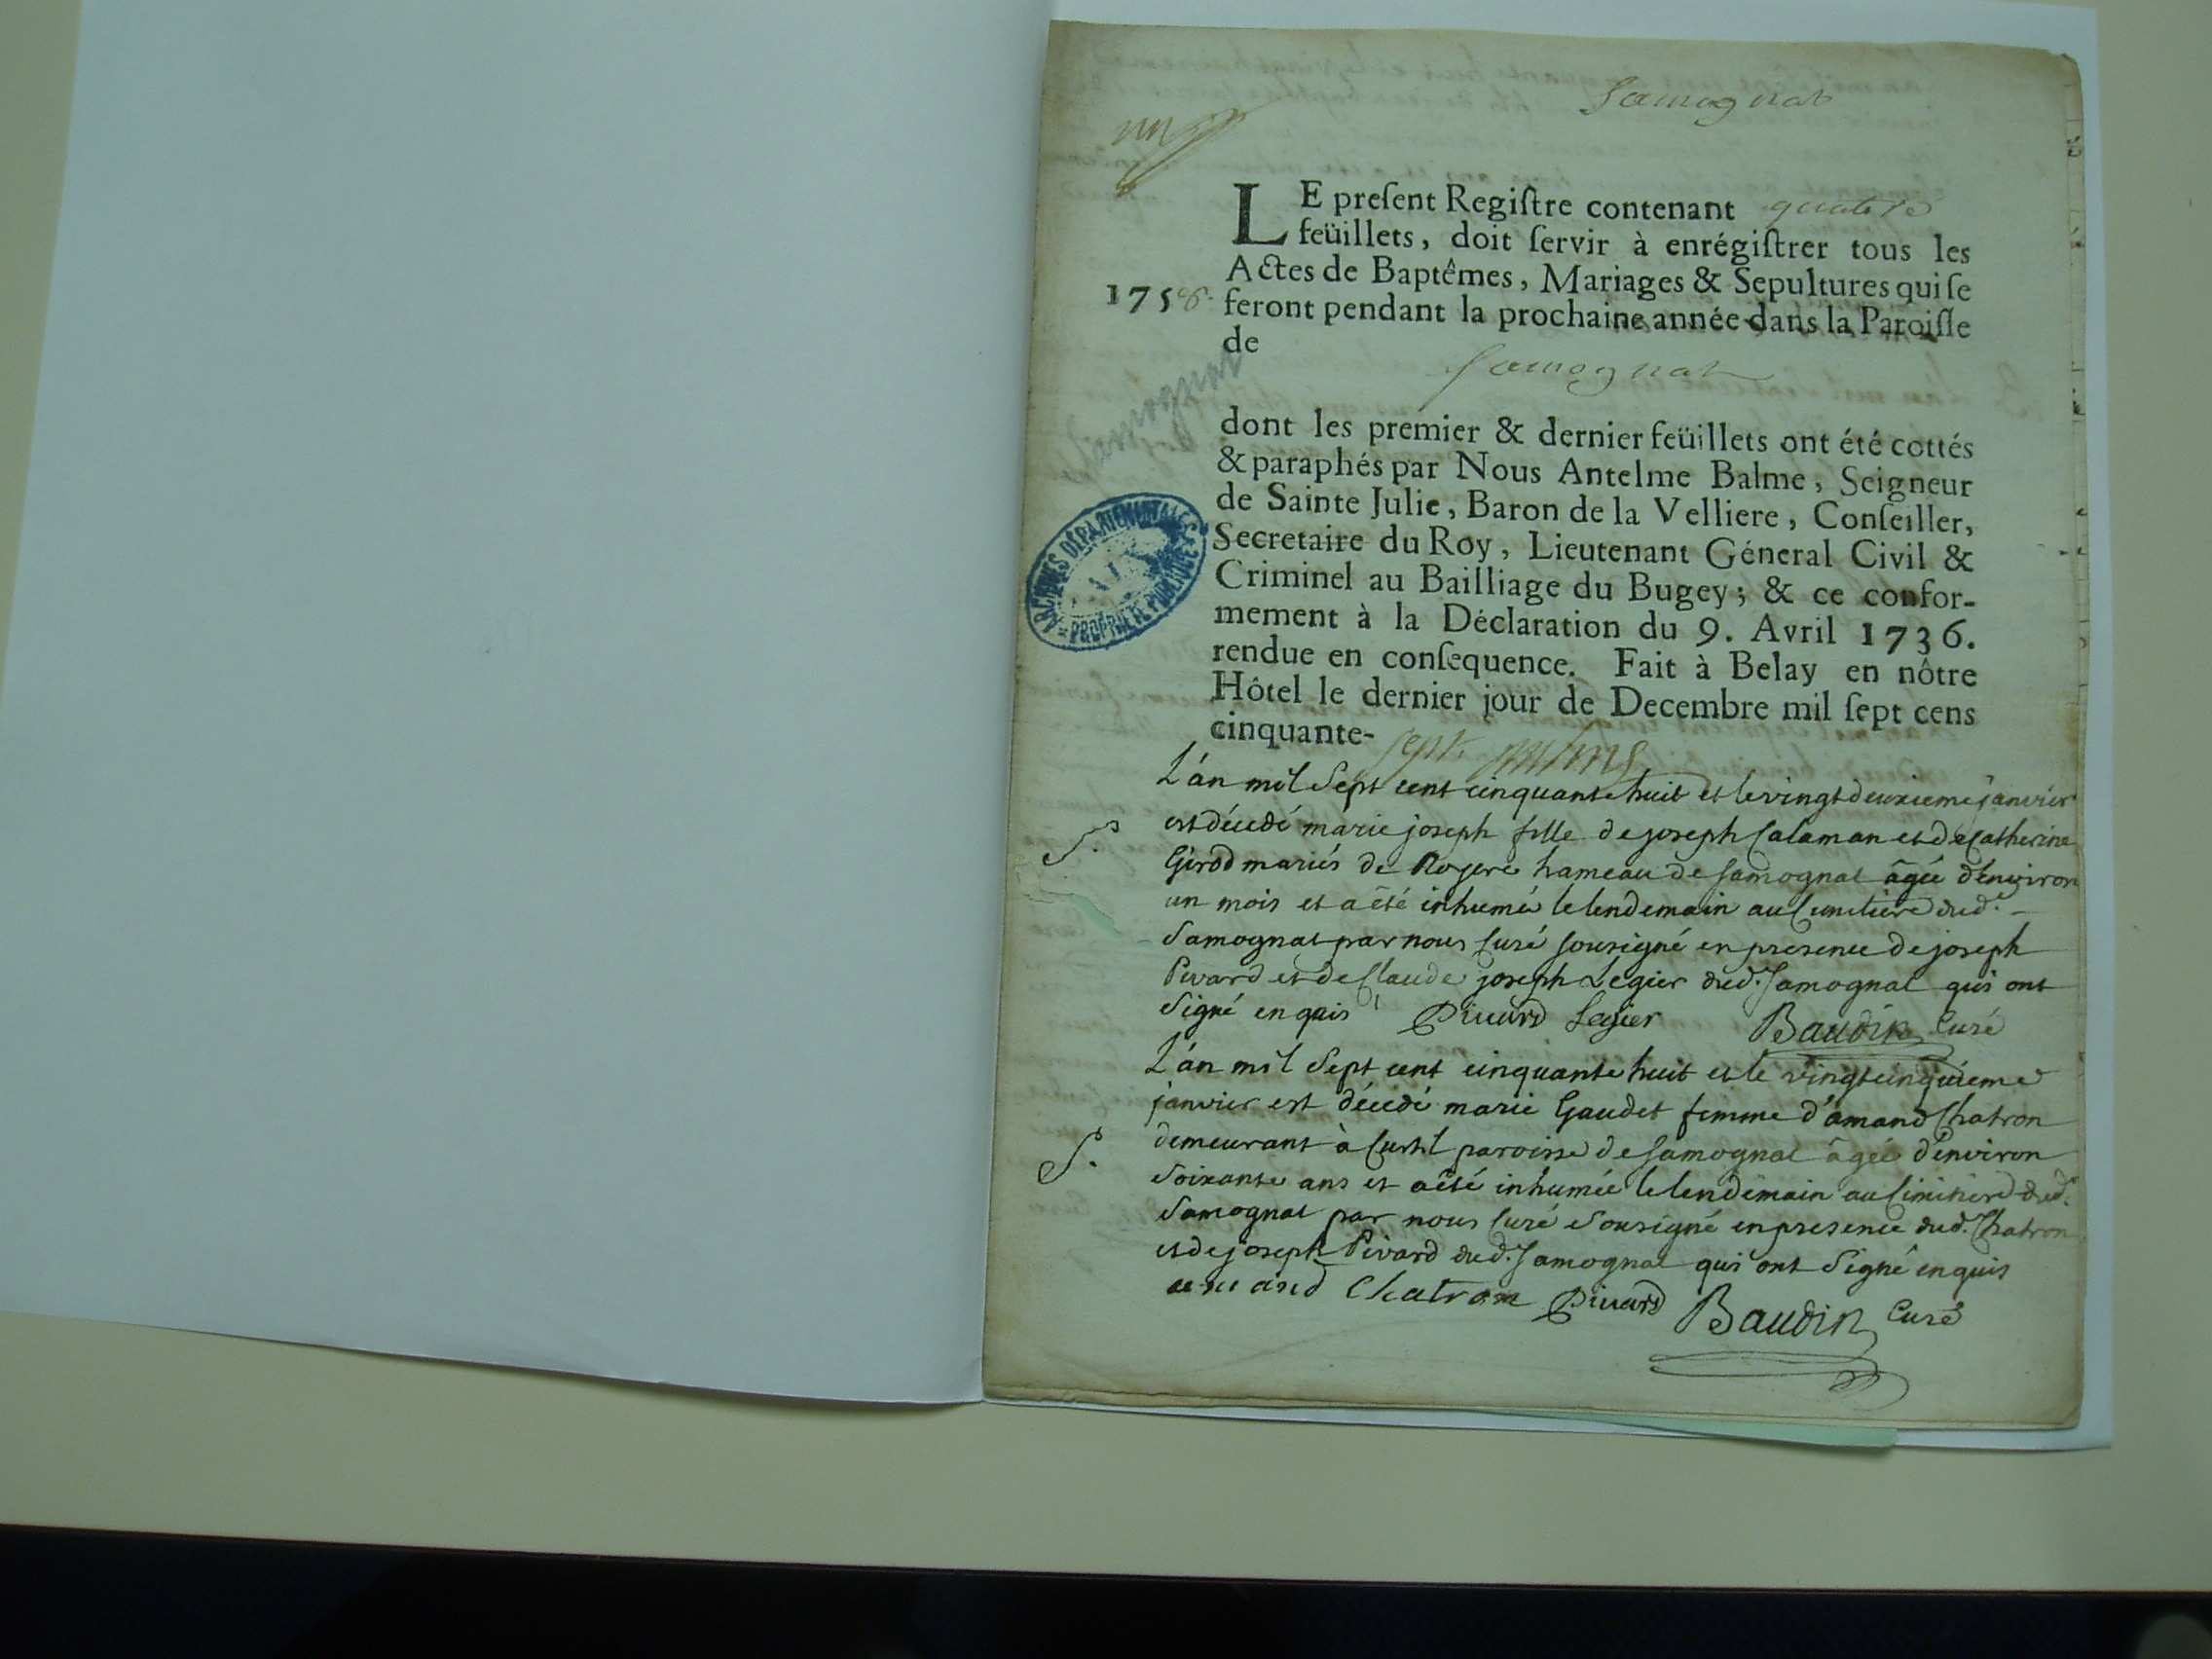 Samognat
un
LE present Registre contenant quatre
feüillets, doit servir à enrégistrer tous les
Actes de Baptêmes, Mariages & Sepultures qui se
1758. feront pendant la prochaine année dans la Paroisse
de
Samognat
Samognat
dont les premier & dernier feüillets ont été cottés
& paraphés par Nous Antelme Balme, Seigneur
de Sainte Julie, Baron de la Velliere, Conseiller,
Secretaire du Roy, Lieutenant Géneral Civil &
Criminel au Bailliage du Bugey; & ce confor-
mement à la Déclaration du 9. Avril 1736.
rendue en consequence. Fait à Belay en nôtre
Hôtel le dernier jour de Decembre mil sept cens
cinquante- sept
ARCHIVES DÉPARTEMENTALES
PROPRIÉTÉ PUBLIQUE
L'án mil Sept cent cinquante huit et le vingt deuxieme janvier
S. est décédé marie joseph fille de joseph Calaman et de Catherine
Girod mariés de Rogere hameau de Samognat âgée d'énviron
un mois et a été inhumée le lendemain au Cimetiere dud.
Samognat par nous Curé sousigné en presence de joseph
Pivard et de Claude joseph Légier dud. Samognat qui ont
Signé enquis Pivard Legier Baudin Curé
L'án mil Sept cent cinquante huit et le vingtcinquieme
janvier est décédé marie Gaudet femme d'amand Chatron
S. demeurant à Curtil paroisse de Samognat âgée d'énviron
Soixante ans et a été inhumée le lendemain au Cimitiere dud.
Samognat par nous Curé Sousigné en presence dud. Chatron
et de joseph Pivard dud. Samognat qui ont Signé enquis
amand Chatron Pivard Baudin Curé